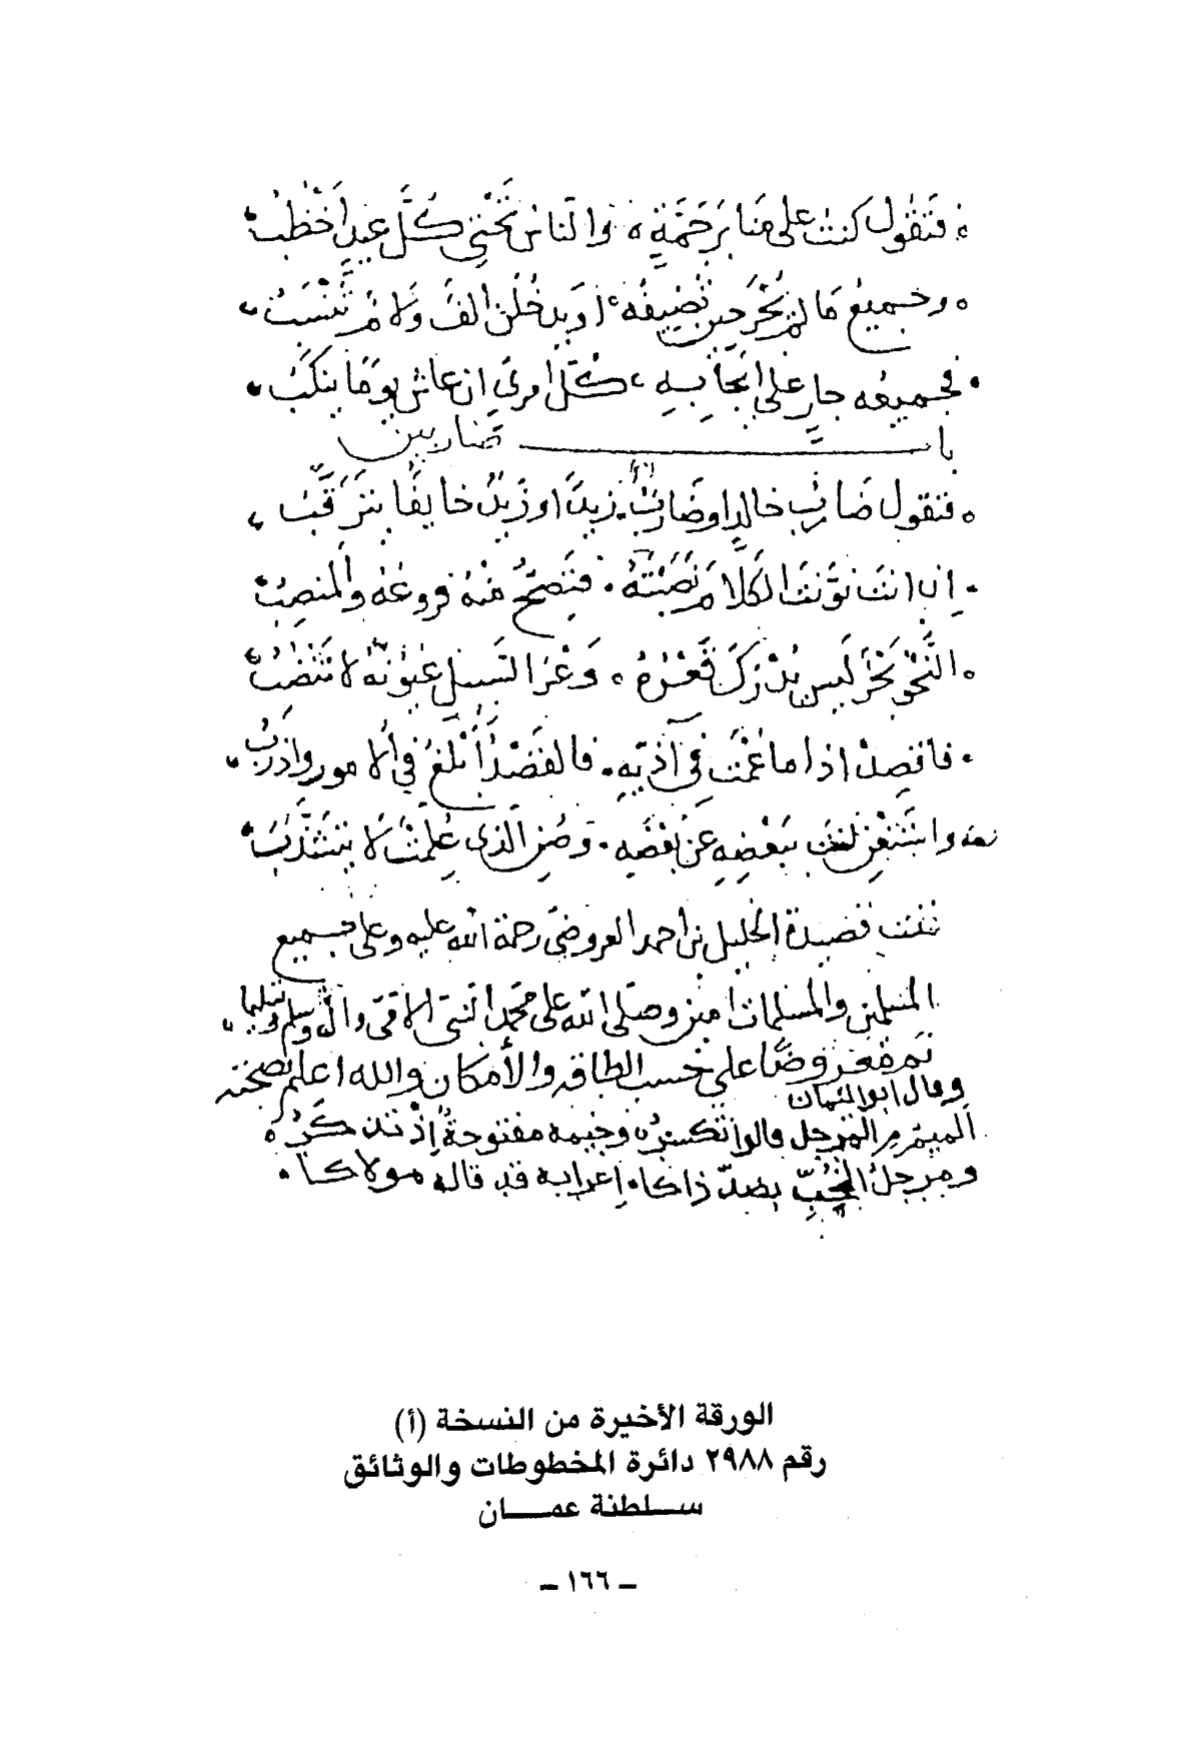 فَتَقُولُ كنتُ على مَنابرَ جَمَّةٍ ، والنَّاسُ تَحْتِي كُلَّ عِيدٍ أَخْطُبُ
وجميعُ مَا لم يُجْرَ حين تُضِيفُه ، او يدخُلَن الفٌ وَلَامٌ تَنْسُبُ
فجميعُه جارٍ على اِنجابِهِ ، كُلُّ امرئٍ ان عاش يومًا ينكَبُ
باب ضاربين
فتقول ضَاربُ خالدٍ او ضَاربٌ زيدًا او زيدٌ خايفًا يترَقَّبُ
اِن انتَ نوَّنتَ الكَلامَ نَصَبْتَهُ . فَتَصِحُّ مِنْهُ فروعُهُ والمنصِبُ
النَّحْوُ بَحْرٌ لَيسَ يُدْرَكُ قَعْرُهُ ، وَعْرُ السَّبيلِ عُيُونُهُ لا تَنْضُبُ
فاقصِدْ اذا ما عُمْتَ في آذِيِّهِ . فالقَصْدُ أَبْلَغُ في الامورِ واذرَبُ
واسْتَغْنِ انتَ بِبَعْضِهِ عن بَعْضِهِ . وَصُنِ الَّذي عُلِّمْتَ لا يتشَذَّبُ
تمت قصيدة الخليل بن احمد العروضي رحمة الله عليه وعلى جميع
المسلمين والمسلمات امين وصلى الله على محمد النبي الامي واله وسلم تسليما
تم معروضًا على حسب الطاقه والأمكان والله اعلم بصحته
وقال ابو النعمان
الميم من المرجل قالوا تكسرُ وجيمه مفتوحةٌ إذ تذكَرُ
ومرجلُ الجُبِّ بضدّ ذاكا . إعرابه قد قاله مولاكا .
الورقة الأخيرة من النسخة (أ)
رقم ٢٩٨٨ دائرة المخطوطات والوثائق
سلطنة عمان
– ١٦٦ –